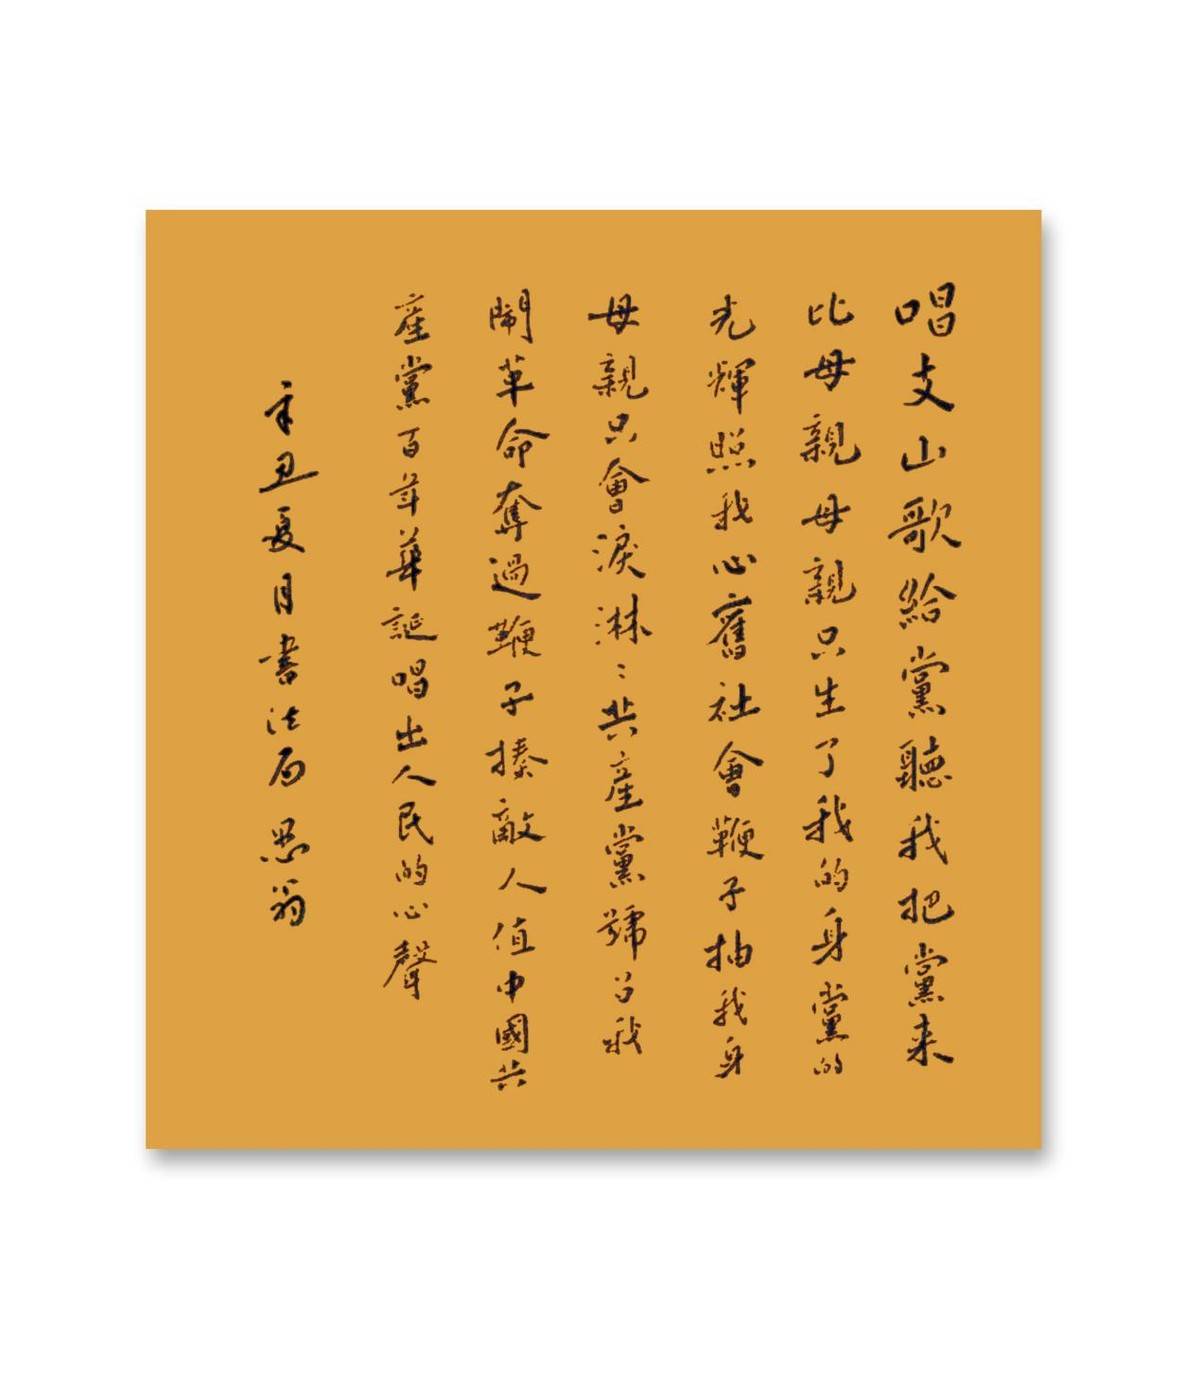 唱支山歌給黨聽我把黨来
比母親母親只生了我的身黨的
光輝照我心舊社會鞭子抽我身
母親只會淚淋〻共產黨號召我
鬧革命奪過鞭子揍敵人值中國共
產黨百年華誕唱出人民的心聲
辛丑夏月書法